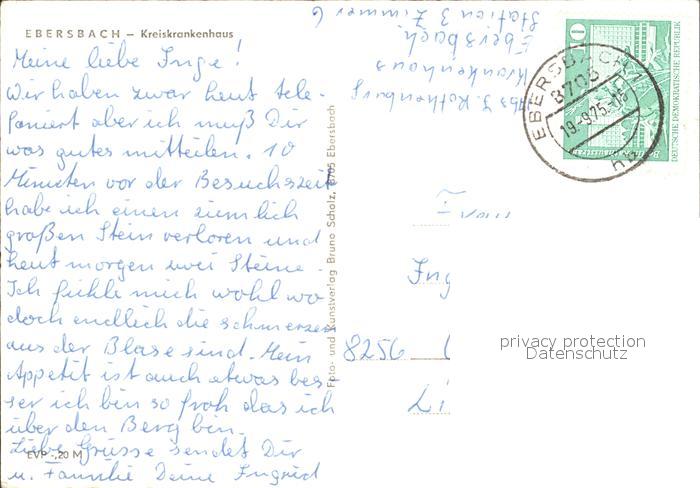 EBERSBACH – Kreiskrankenhaus
Meine liebe Inge!
Wir haben zwar heut tele-
foniert aber ich muß Dir
was gutes mitteilen. 10
Minuten vor der Besuchszeit
habe ich einen ziemlich
großen Stein verloren und
heut morgen zwei Steine.
Ich fühle mich wohl wo
doch endlich die schmerzen
aus der Blase sind. Mein
Appetit ist auch etwas bes-
ser ich bin so froh das ich
über den Berg bin.
Liebe Grüsse sendet Dir
u. Familie Deine Ingried
EVP -,20 M
Foto- und Kunstverlag Bruno Scholz, 8705 Ebersbach
Abs. I. Rothenburg
Krankenhaus
Ebersbach
Station 3 Zimmer 6
10
DEUTSCHE DEMOKRATISCHE REPUBLIK
EBERSBACH 1
8705
19.-9.75.-18
Frau
Ing
8256
Li
privacy protection
Datenschutz